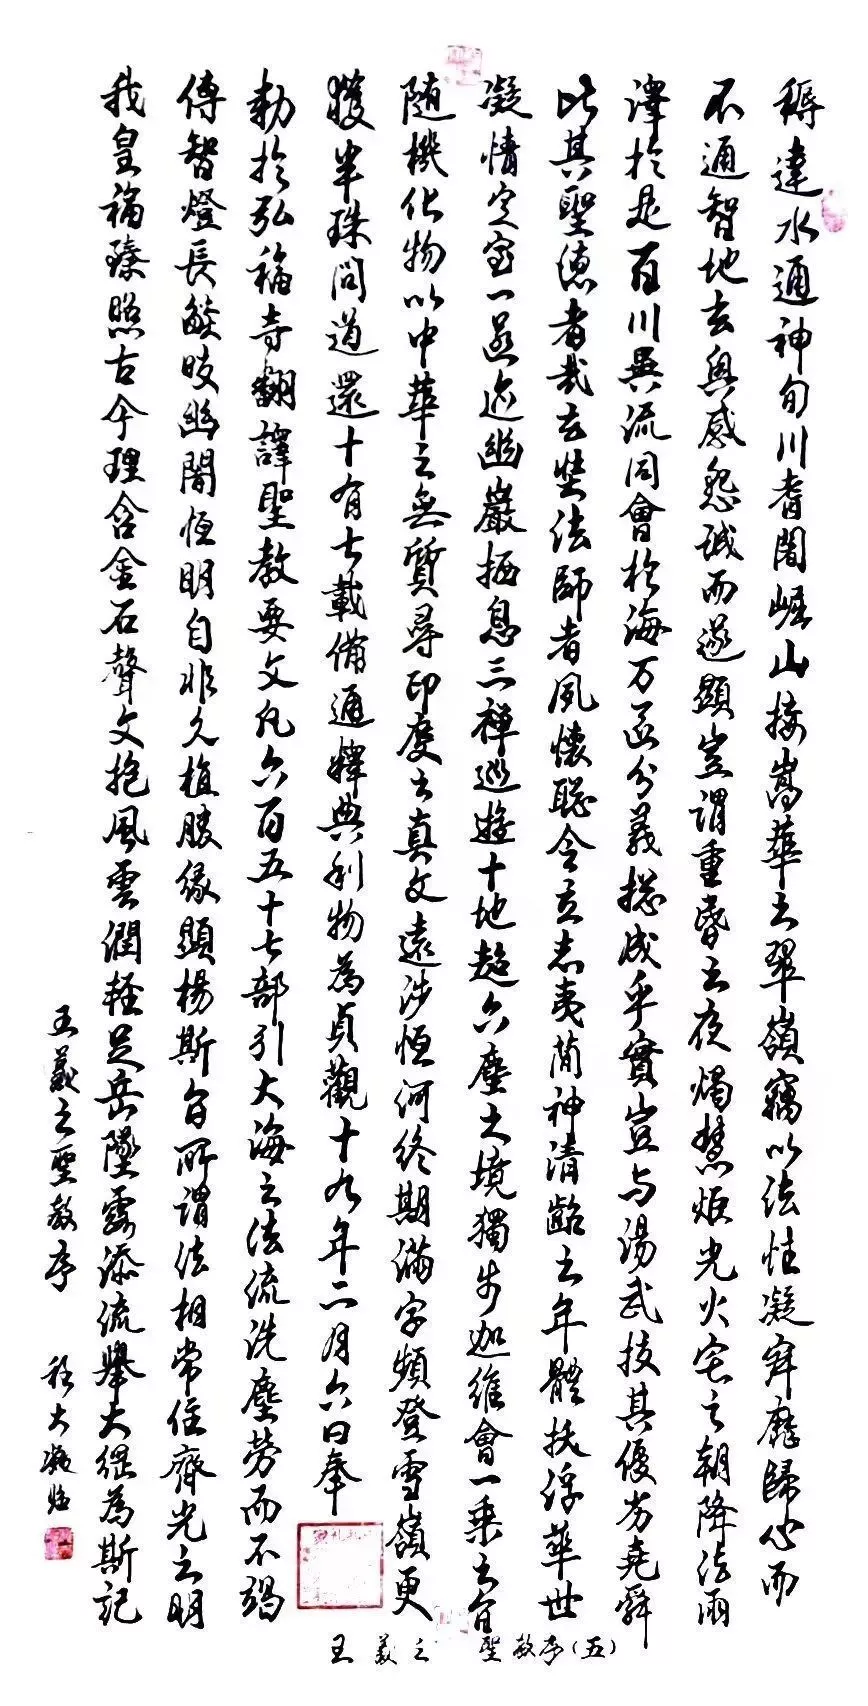 耨達水通神旬川耆闍崛山接嵩華之翠嶺竊以法性凝寂靡歸心而
不通智地玄奧感懇誠而遂顯豈謂重昏之夜燭慧炬光火宅之朝降法雨
澤於是百川異流同會於海万區分義揔成乎實豈与湯武挍其優劣堯舜
比其聖德者哉玄奘法師者夙懷聡令立志夷簡神清齠之年體拔浮華世
凝情定室一匿迹幽巖栖息三禪巡遊十地超六塵之境獨步迦維會一乘之旨
随機化物以中華之無質尋印度之真文遠涉恒河終期滿字頻登雪嶺更
獲半珠問道還十有七載備通釋典利物為貞觀十九年二月六日奉
勅於弘福寺翻譯聖教要文凡六百五十七部引大海之法流洗塵勞而不竭
傳智燈長燄皎幽闇恒明自非久植勝緣顯揚斯旨所謂法相常住齊光之明
我皇福臻照古今理含金石聲文抱風雲潤輕足岳墜露添流舉大綱為斯記
王羲之聖教序 程大凝臨
王羲之 聖教序(五)